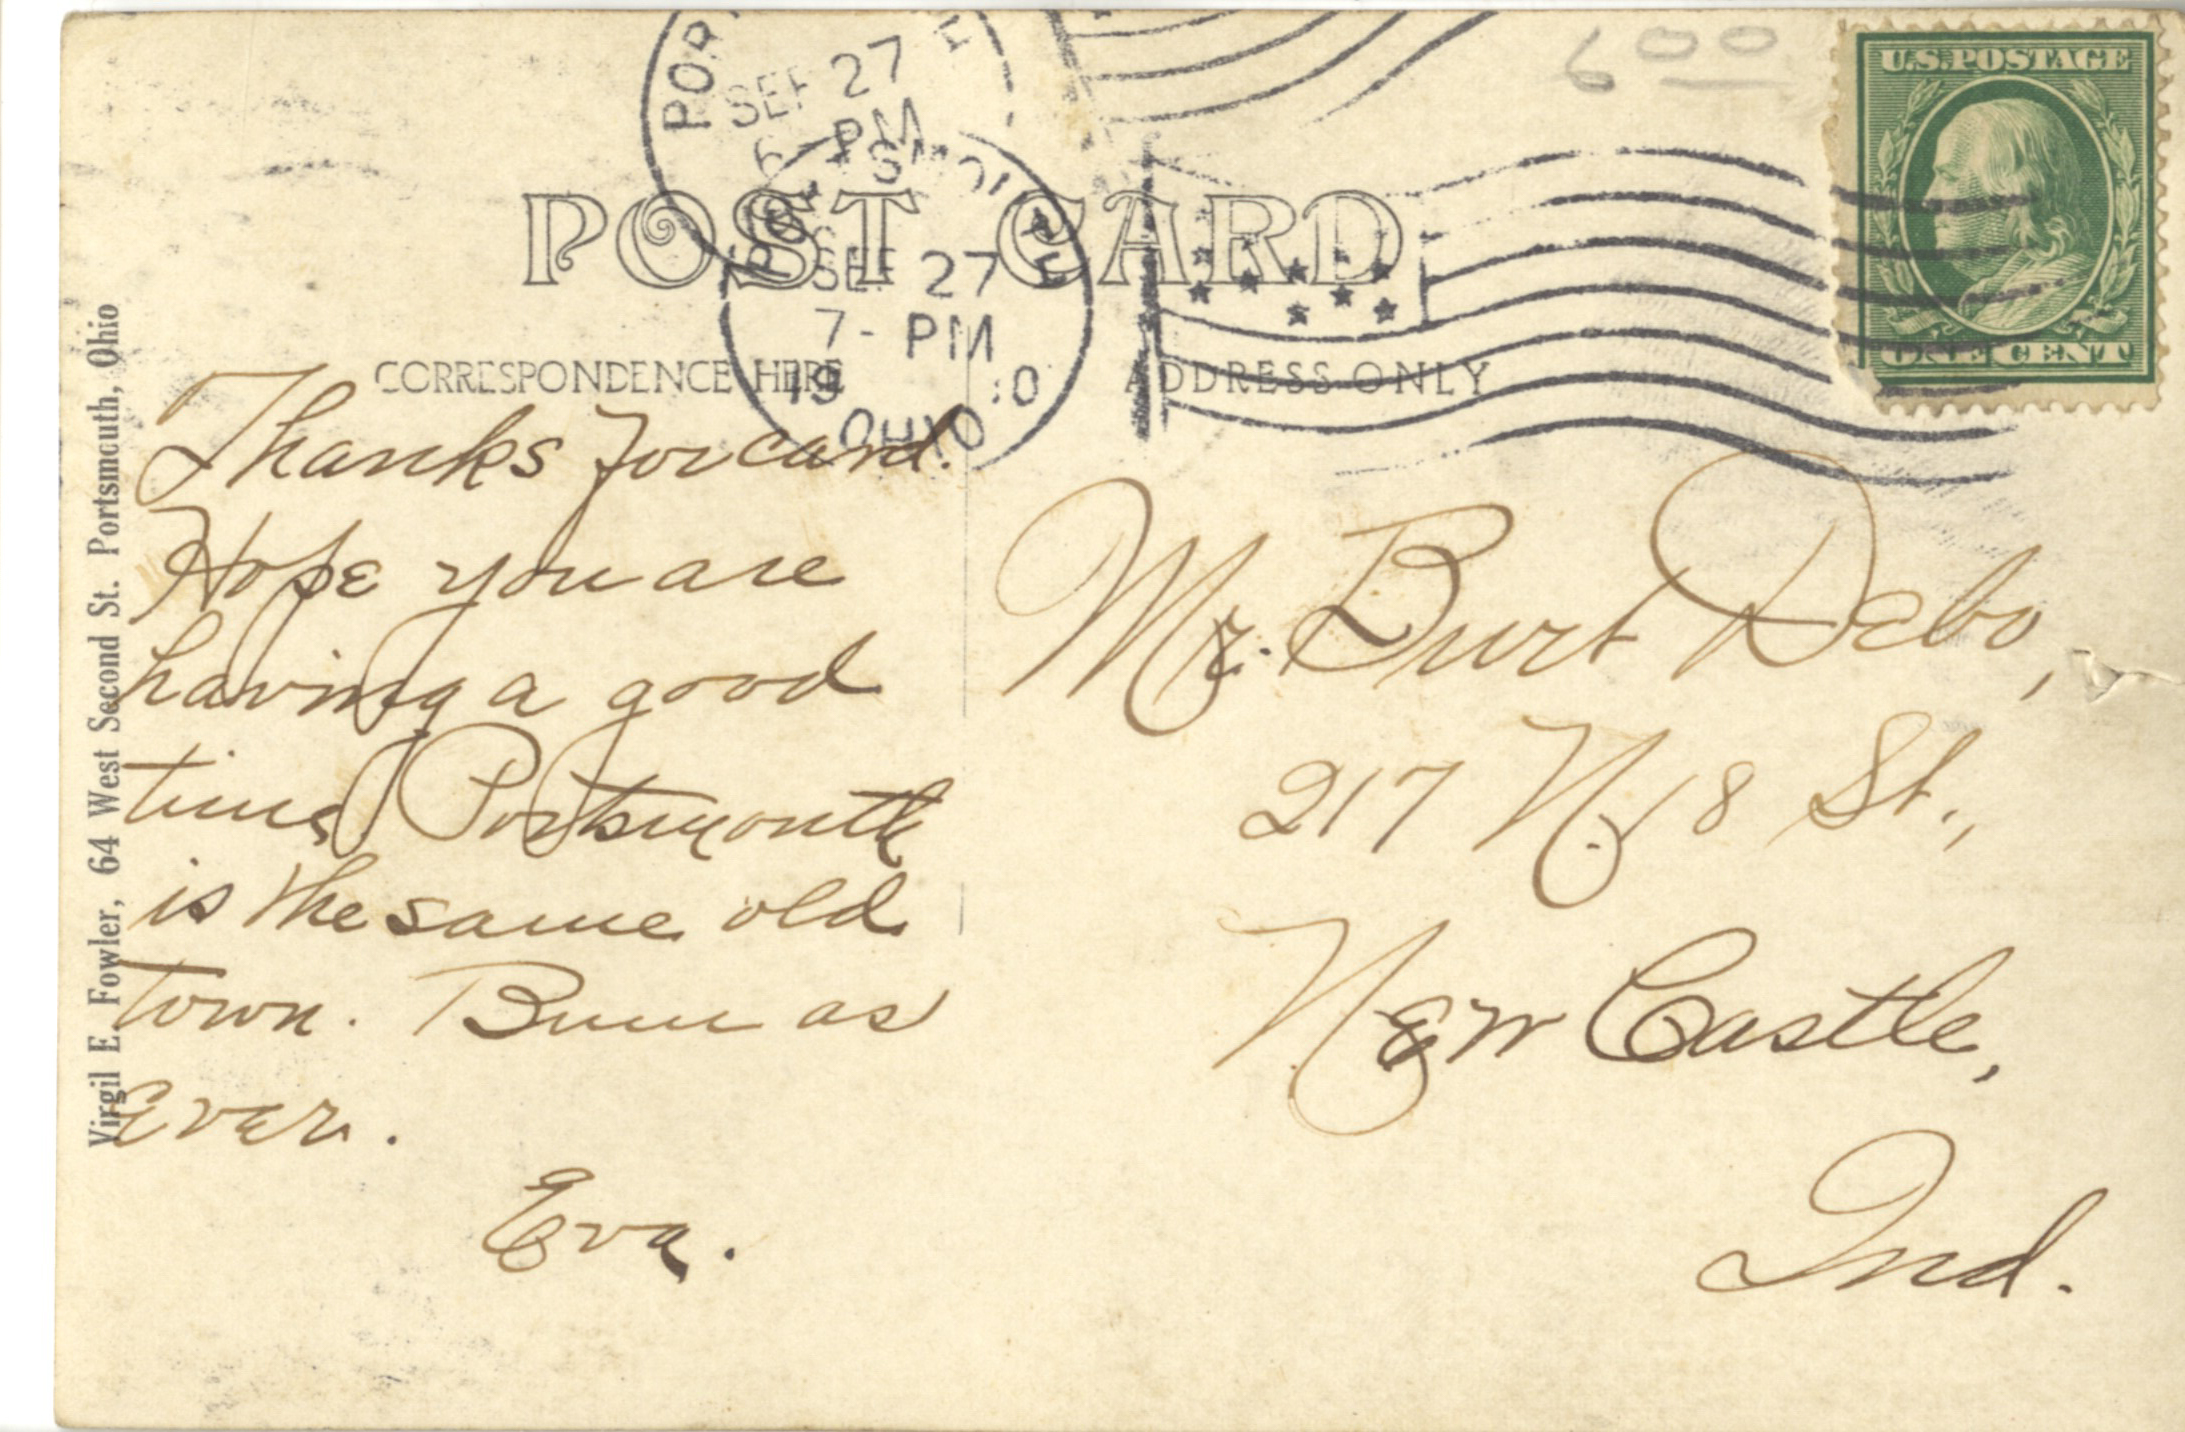 600
U.S. POSTAGE
ONE CENT
SEP 27
6- PM
PORTSMOUTH
SEP 27
7- PM
19 10
OHIO
POST CARD
CORRESPONDENCE HERE
ADDRESS ONLY
Thanks for card.
Hope you are
having a good
time, Portsmouth
is the same old
town. Bum as
Ever.
Eva.
Mr. Burt Debo,
217 N. 18 St.,
New Castle,
Ind.
Virgil E. Fowler, 64 West Second St. Portsmouth, Ohio